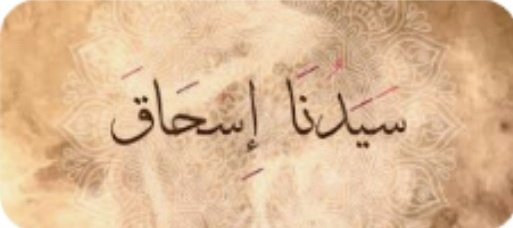 سَيَدُنَا إِسحَاقَ